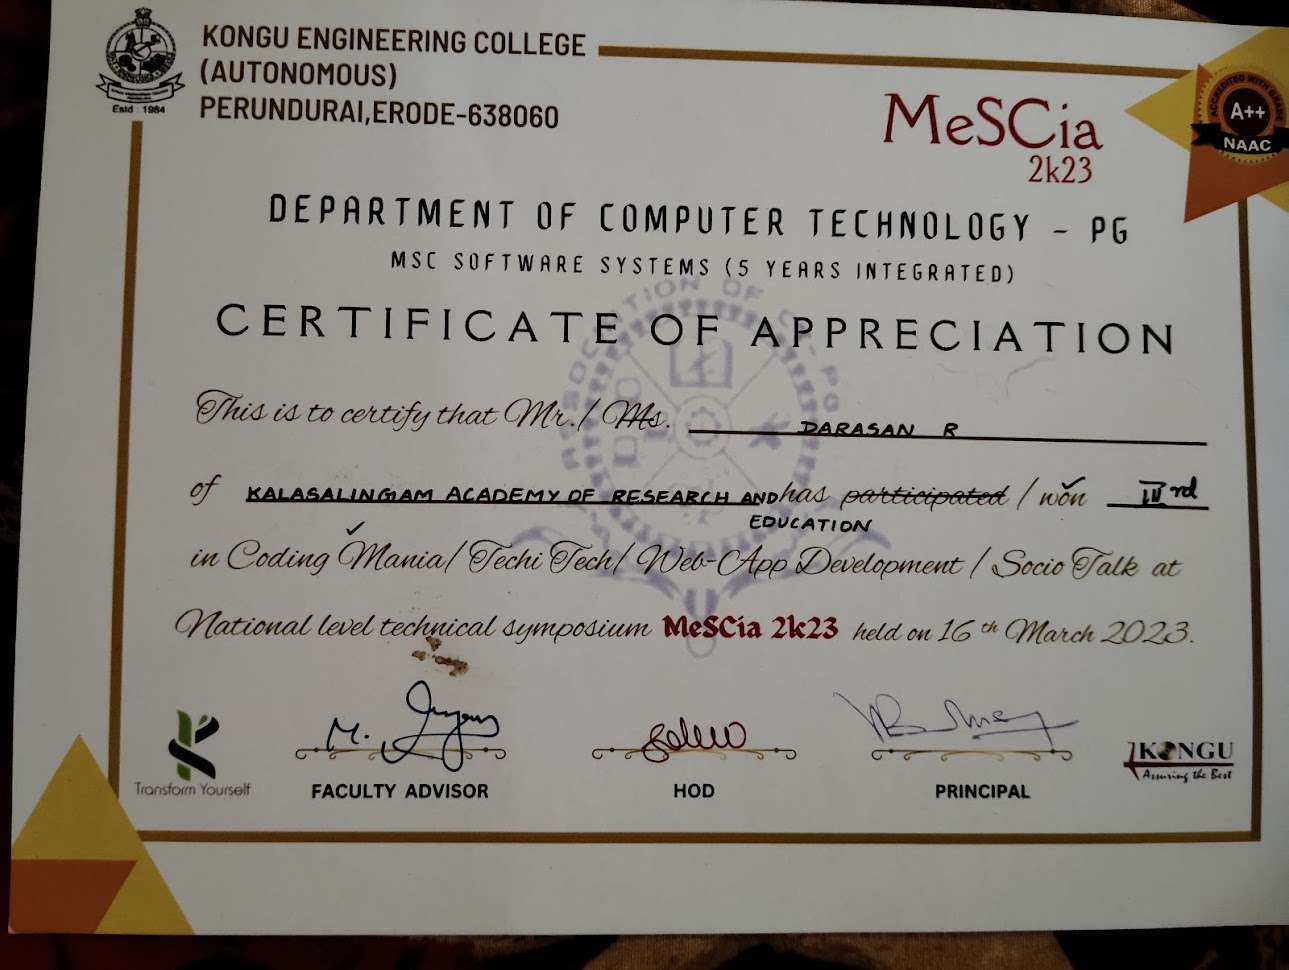 KONGU ENGINEERING COLLEGE
(AUTONOMOUS)
PERUNDURAI,ERODE-638060
Estd : 1984
MeSCia
2k23
ACCREDITED WITH GRADE
A++
NAAC
DEPARTMENT OF COMPUTER TECHNOLOGY - PG
MSC SOFTWARE SYSTEMS (5 YEARS INTEGRATED)
CERTIFICATE OF APPRECIATION
This is to certify that Mr./ Ms. DARASAN R
of KALASALINGAM ACADEMY OF RESEARCH AND has participated / won IIIrd
EDUCATION
in Coding Mania/ Techi Tech/ Web-App Development / Socio Talk at
National level technical symposium MeSCia 2k23 held on 16th March 2023.
Transform Yourself
FACULTY ADVISOR
HOD
PRINCIPAL
KONGU
Assuring the Best